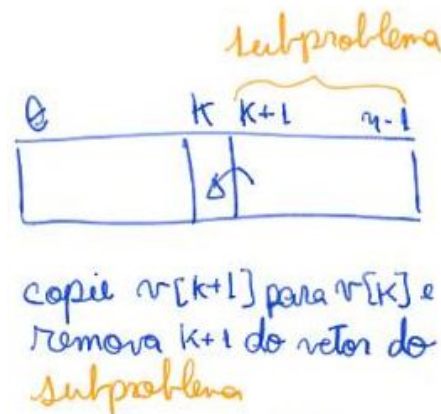 subproblema
0 K K+1 n-1
copie v[k+1] para v[k] e
remova k+1 do vetor do
subproblema